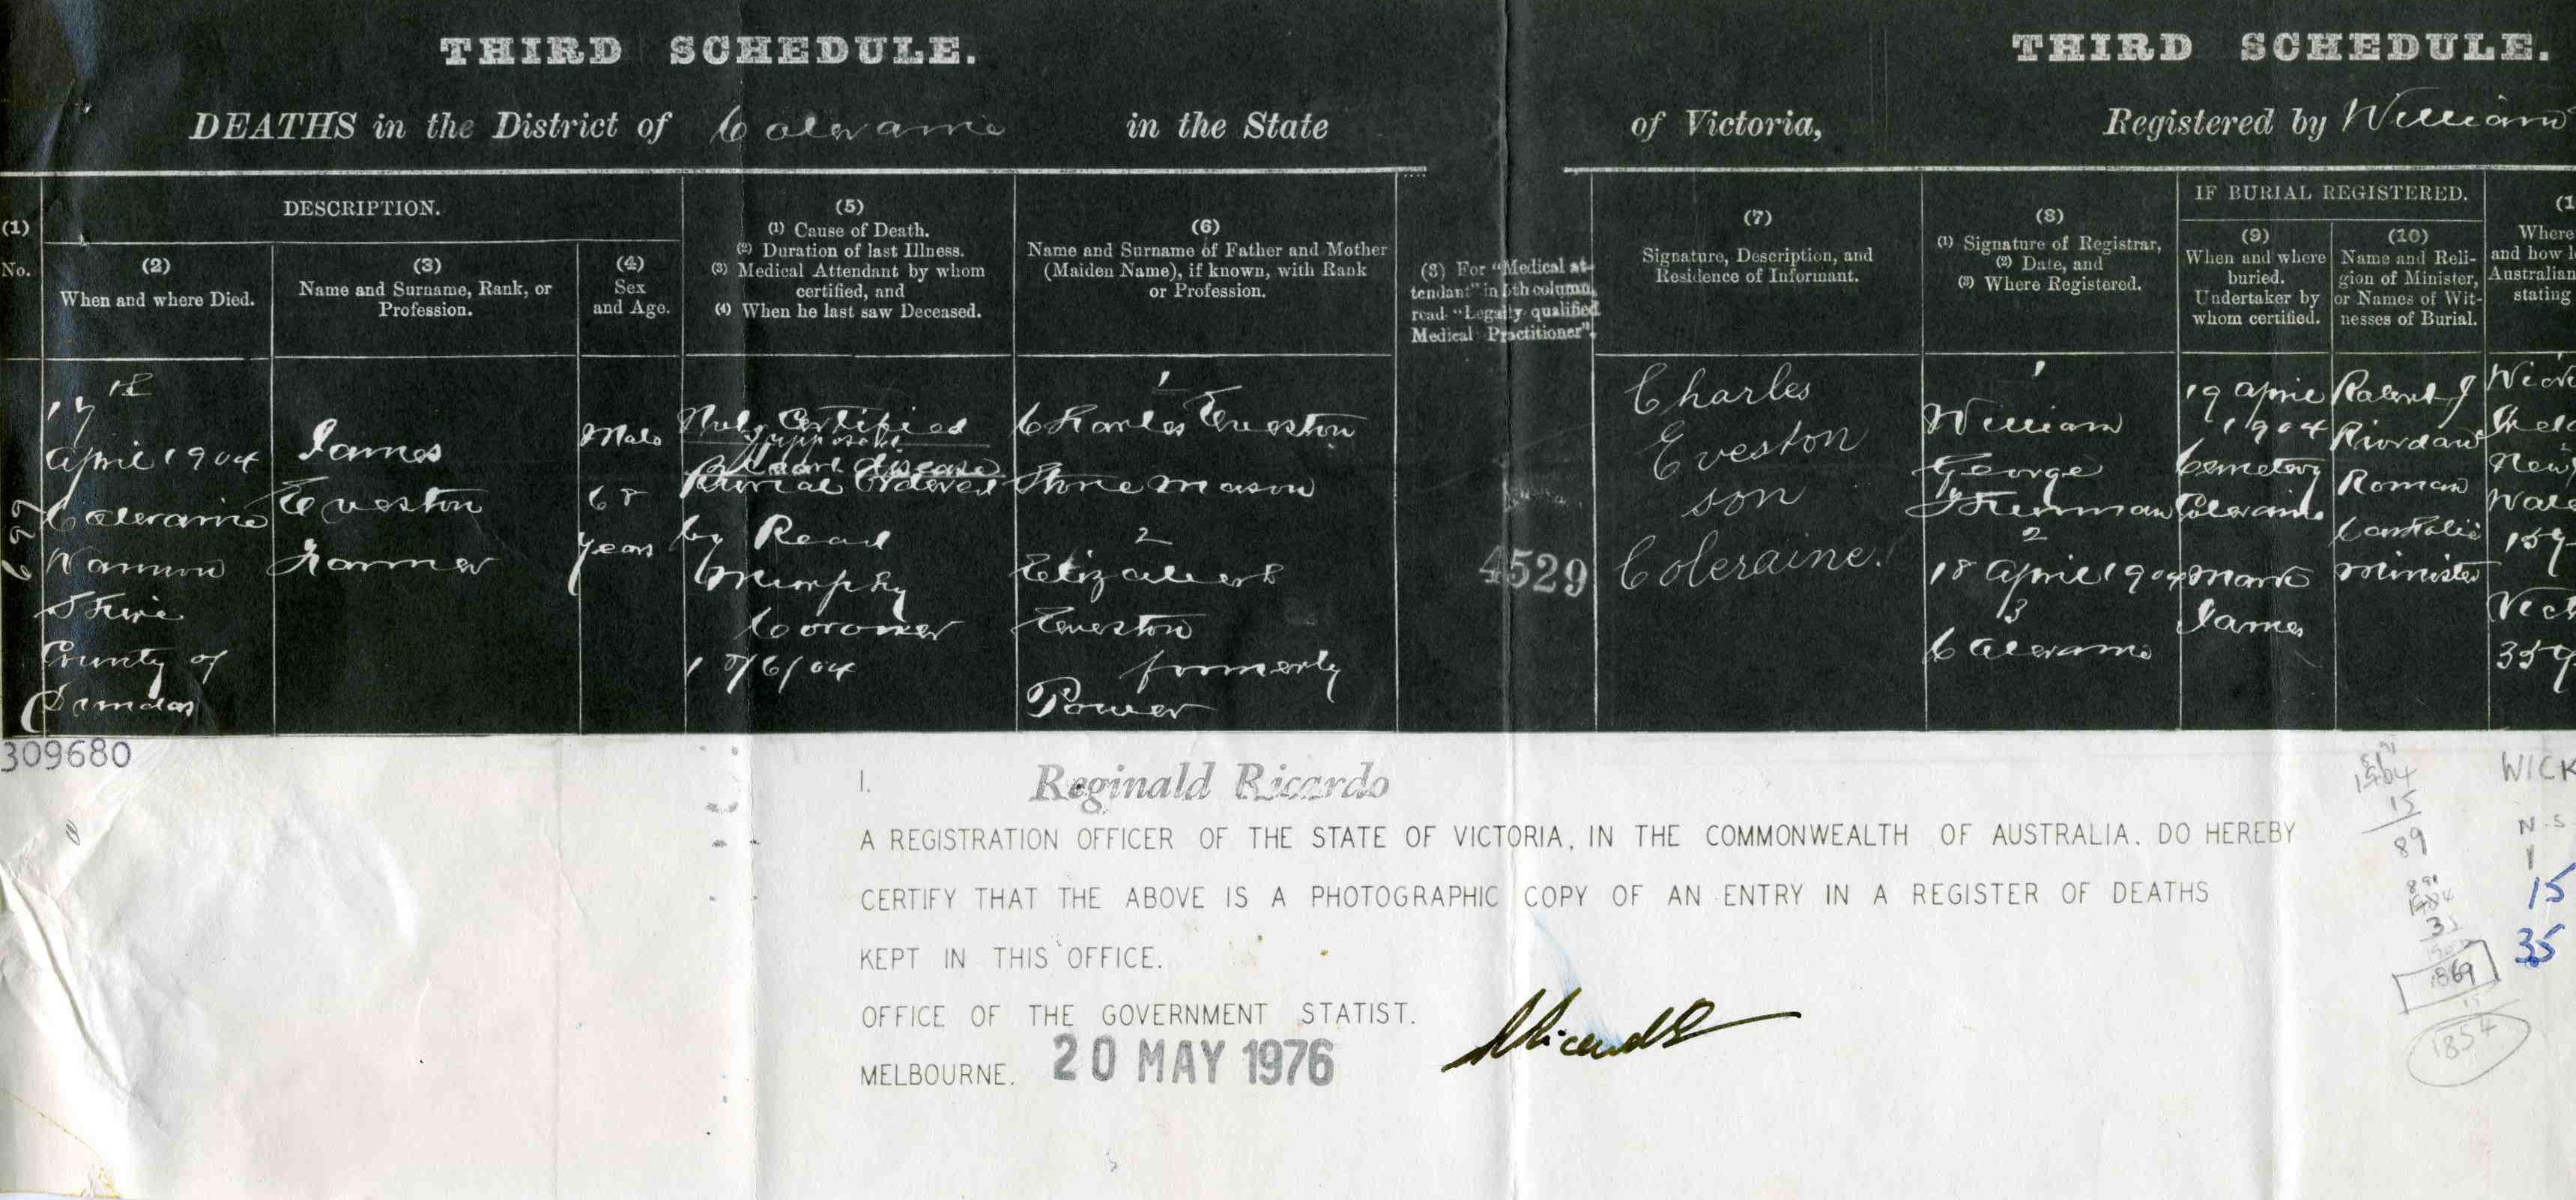 THIRD SCHEDULE.
THIRD SCHEDULE.
DEATHS in the District of Coleraine in the State
of Victoria, Registered by William
(1)
No.
DESCRIPTION.
(2)
When and where Died.
(3)
Name and Surname, Rank, or
Profession.
(4)
Sex
and Age.
(5)
(1) Cause of Death.
(2) Duration of last Illness.
(3) Medical Attendant by whom
certified, and
(4) When he last saw Deceased.
(6)
Name and Surname of Father and Mother
(Maiden Name), if known, with Rank
or Profession.
(3) For "Medical at-
tendant" in 5th column,
read "Legally qualified
Medical Practitioner".
(7)
Signature, Description, and
Residence of Informant.
(8)
(1) Signature of Registrar,
(2) Date, and
(3) Where Registered.
IF BURIAL REGISTERED.
(9)
When and where
buried.
Undertaker by
whom certified.
(10)
Name and Reli-
gion of Minister,
or Names of Wit-
nesses of Burial.
(1
Where
and how l
Australian
stating
697
17th
April 1904
Coleraine
Wannon
Shire
County of
Dundas
James
Eveston
Farmer
Male
68
years
Not Certified
Supposed
Heart disease
Burial Ordered
by Read
Murphy
Coroner
1
Charles Eveston
Stone Mason
2
Elizabeth
Eveston
formerly
Power
4529
Charles
Eveston
son
Coleraine.
1
William
George
2
18 April 1904
3
Coleraine
19 April
1904
Cemetery
Coleraine
Mark
James
Robert J
Riordan
Roman
Catholic
Minister
New
Wal
Vict
309680
I, Reginald Ricardo
A REGISTRATION OFFICER OF THE STATE OF VICTORIA, IN THE COMMONWEALTH OF AUSTRALIA, DO HEREBY
CERTIFY THAT THE ABOVE IS A PHOTOGRAPHIC COPY OF AN ENTRY IN A REGISTER OF DEATHS
KEPT IN THIS OFFICE.
OFFICE OF THE GOVERNMENT STATIST.
MELBOURNE. 20 MAY 1976
1904
15
89
35
1869
15
1854
WICK
N.S.
1
15
35